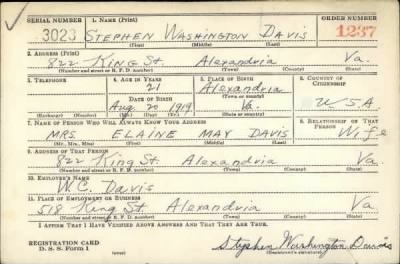 SERIAL NUMBER 1. NAME (Print) ORDER NUMBER
3023 STEPHEN WASHINGTON DAVIS 1237
(First) (Middle) (Last)
2. ADDRESS (Print)
822 KING St. Alexandria Va.
(Number and street or R. F. D. number) (Town) (County) (State)
3. TELEPHONE 4. AGE IN YEARS 5. PLACE OF BIRTH 6. COUNTRY OF CITIZENSHIP
21 Alexandria
(Town or county)
DATE OF BIRTH
Aug 20 1919 Va. U.S.A.
(Exchange) (Number) (Mo.) (Day) (Yr.) (State or country)
7. NAME OF PERSON WHO WILL ALWAYS KNOW YOUR ADDRESS 8. RELATIONSHIP OF THAT PERSON
MRS. ELAINE MAY DAVIS Wife
(Mr., Mrs., Miss) (First) (Middle) (Last)
9. ADDRESS OF THAT PERSON
822 King St. Alexandria Va
(Number and street or R. F. D. number) (Town) (County) (State)
10. EMPLOYER'S NAME
W.C. Davis
11. PLACE OF EMPLOYMENT OR BUSINESS
518 King St. Alexandria Va
(Number and street or R. F. D. number) (Town) (County) (State)
I AFFIRM THAT I HAVE VERIFIED ABOVE ANSWERS AND THAT THEY ARE TRUE.
REGISTRATION CARD
D. S. S. Form 1 (over) Stephen Washington Davis
(Registrant's signature)